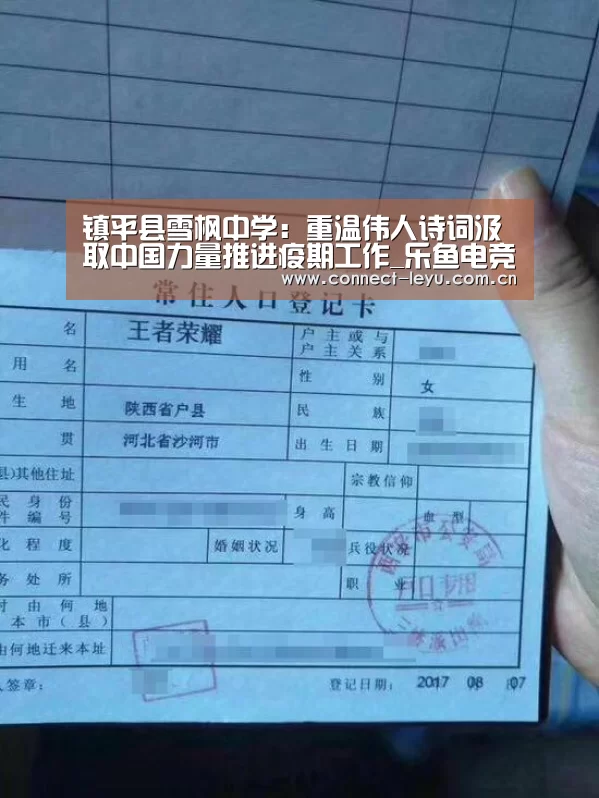 镇平县雪枫中学：重温伟人诗词汲
取中国力量推进疫期工作_乐鱼电竞
www.connect-leyu.com.cn
常住人口登记卡
名 王者荣耀 户主或与
户主关系
用名 性别 女
生地 陕西省户县 民族
贯 河北省沙河市 出生日期
县)其他住址 宗教信仰
民身份
件编号 身高 血型
化程度 婚姻状况 兵役状况
务处所 职业
时由何地
本市(县)
由何地迁来本址
人签章： 登记日期： 2017 08 07